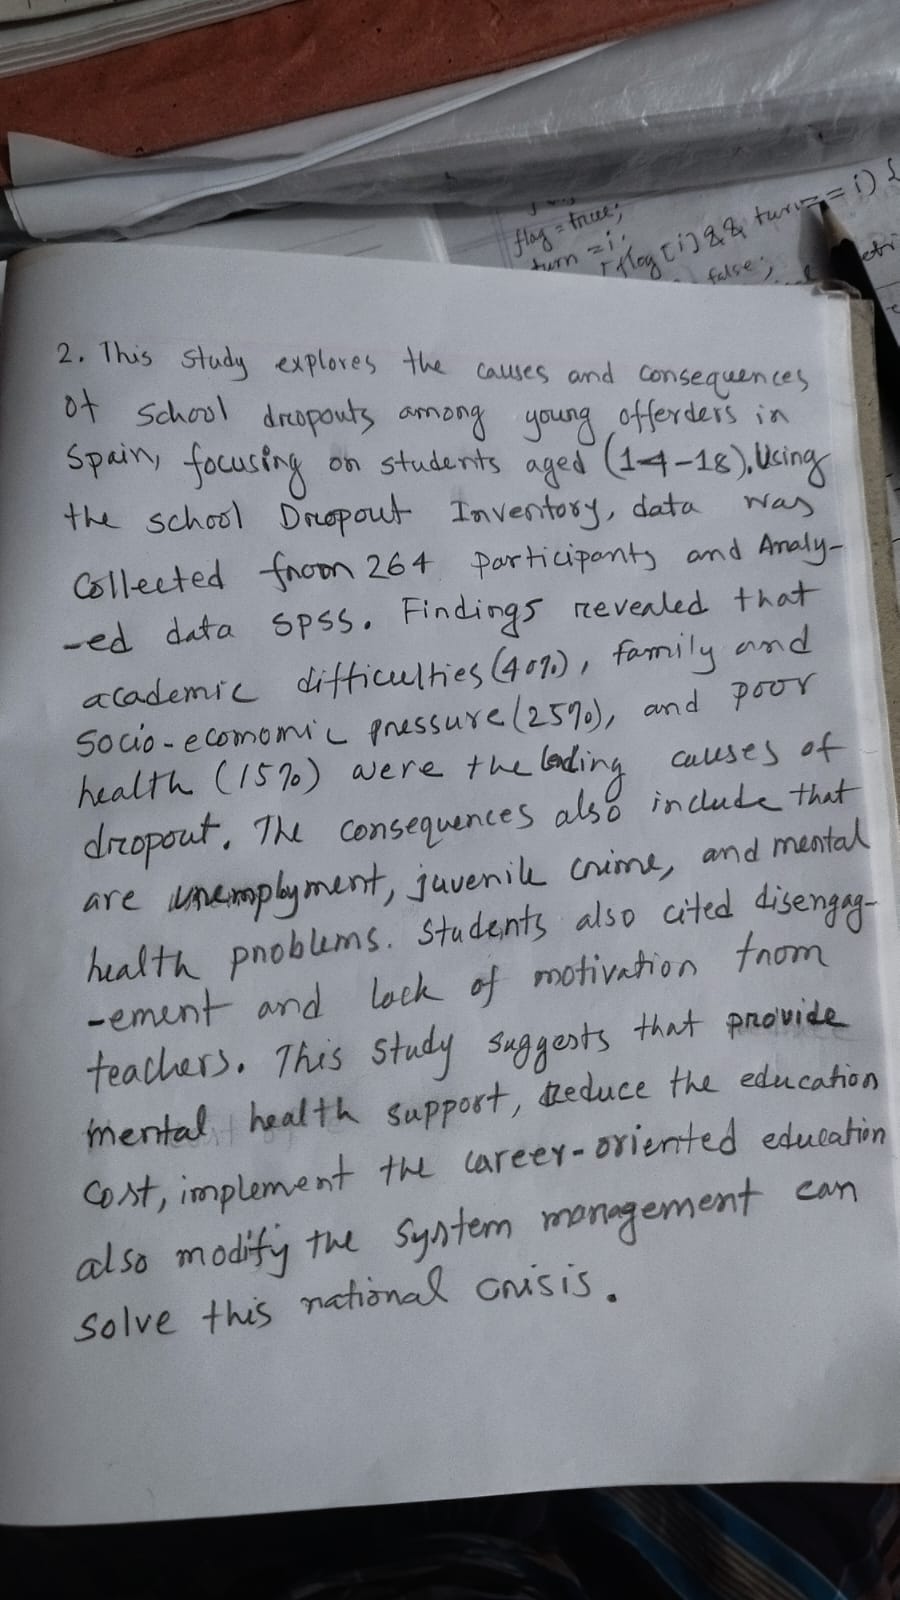 flag = true;
turn = i;
flag [i] && turn == i) {
false;
2. This study explores the causes and consequences
of School dropouts among young offerders in
Spain, focusing on students aged (14-18). Using
the school Dropout Inventory, data was
Collected from 264 participants and Analy-
-ed data SPSS. Findings revealed that
academic difficulties (40%), family and
Socio-ecomomic pressure (25%), and poor
health (15%) were the leading causes of
dropout. The consequences also include that
are unemployment, juvenile crime, and mental
health problems. Students also cited disengag-
-ement and lack of motivation from
teachers. This study suggests that provide
mental health support, Reduce the education
Cost, implement the career-oriented education
also modify the System management can
solve this national crisis.